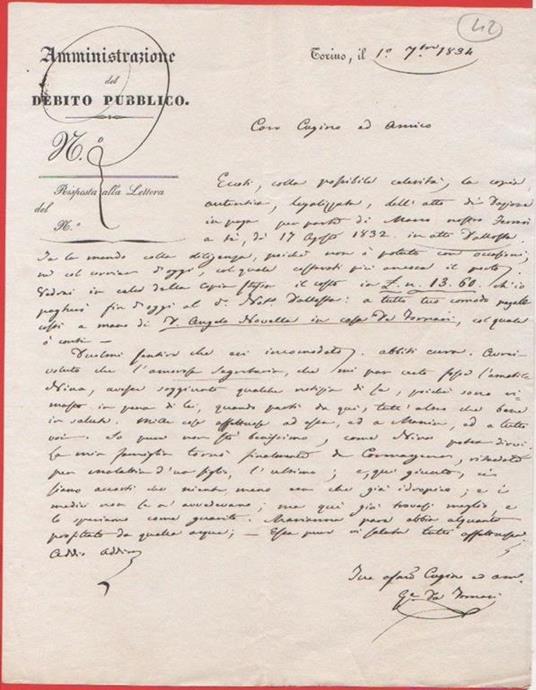 42
Amministrazione
del
DEBITO PUBBLICO.
Torino, il 1º 7bre 1834
N.º
Risposta alla Lettera
del
N.º
Caro Cugino ed Amico
Eccoti, colla possibile celerità, la copia
autentica, legalizzata, dell'atto di
in paga per parte di Marco nostro
a te, di 17 Agosto 1832 in atti Dallosta.
Te la mando colla diligenza, poiché non è potuto con occasioni,
né col corriere d'oggi, col quale
Vedrai in calce della copia stessa il costo in L. n. 13.60. ch'io
pagherò fin d'oggi al Dallosta: a tutto tuo comodo
costì a mano di D. Angelo Novella in casa De Fornari, col quale
è conti —
Duolmi sentire che sei incomodato, abbiti cura. Avrei
voluto che l'amorosa Segretaria, che mi par certo fosse l'amabile
Nina, avesse soggiunto qualche notizia di se, poiché sono
in pena di lei, quando partì da qui; tutt'altro che bene
in salute. Mille cose affettuose ad essa, ed a Maria, ed a tutti
voi. Io pure non sto benissimo, come Nina potrà dirvi.
La mia famiglia tornò finalmente da
per malattia d'una figlia, l'ultima; e, qui giunta, ci
siamo accorti che niente meno era che già idropica; e i
medici non se n'avvedevano; ma qui già trovasi meglio, e
la speriamo come guarita. Marianna pare abbia alquanto
profittato da quelle acque; — Essa pure vi saluta tutti affettuosa.
Addio addio
Tuo Cugino ed am.
De Fornari